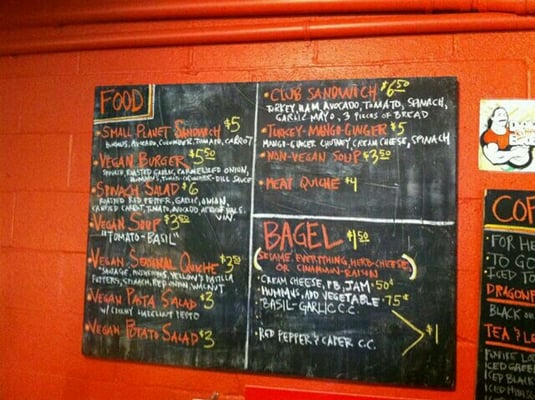 FOOD
• SMALL PLANET SANDWICH $5
HUMMUS, AVOCADO, CUCUMBER, TOMATO, CARROT
• VEGAN BURGER $5.50
SPINACH, ROASTED GARLIC, CARAMELIZED ONION,
HUMMUS, TOMATO, CUCUMBER-DILL SAUCE
• SPINACH SALAD $6
ROASTED RED PEPPER, GARLIC, ONION,
CARROT, TOMATO, AVOCADO
VIN.
• VEGAN SOUP $3.50
"TOMATO-BASIL"
• VEGAN SEASONAL QUICHE $3.50
"SAUSAGE, MUSHROOMS, YELLOW
PEPPERS, SPINACH, RED ONION, WALNUT
• VEGAN PASTA SALAD $3
W/ CREAMY HAZELNUT PESTO
• VEGAN POTATO SALAD $3
• CLUB SANDWICH $6.50
TURKEY, HAM, AVOCADO, TOMATO, SPINACH,
GARLIC MAYO, 3 PIECES OF BREAD
• TURKEY-MANGO-GINGER $5
MANGO-GINGER CHUTNEY, CREAM CHEESE, SPINACH
• NON-VEGAN SOUP $3.50
• MEAT QUICHE $4
BAGEL $1.50
(SESAME, EVERYTHING, HERB-CHEESE,
OR CINNAMON-RAISIN)
• CREAM CHEESE, PB, JAM • 50¢
• HUMMUS, AND VEGETABLE • 75¢
• BASIL-GARLIC C.C.
• RED PEPPER & CAPER C.C.
$1
COF
• FOR HE
TO GO
ICED TO
DRAGONF
BLACK OR
TEA & L
ICED GREE
ICED BLACK